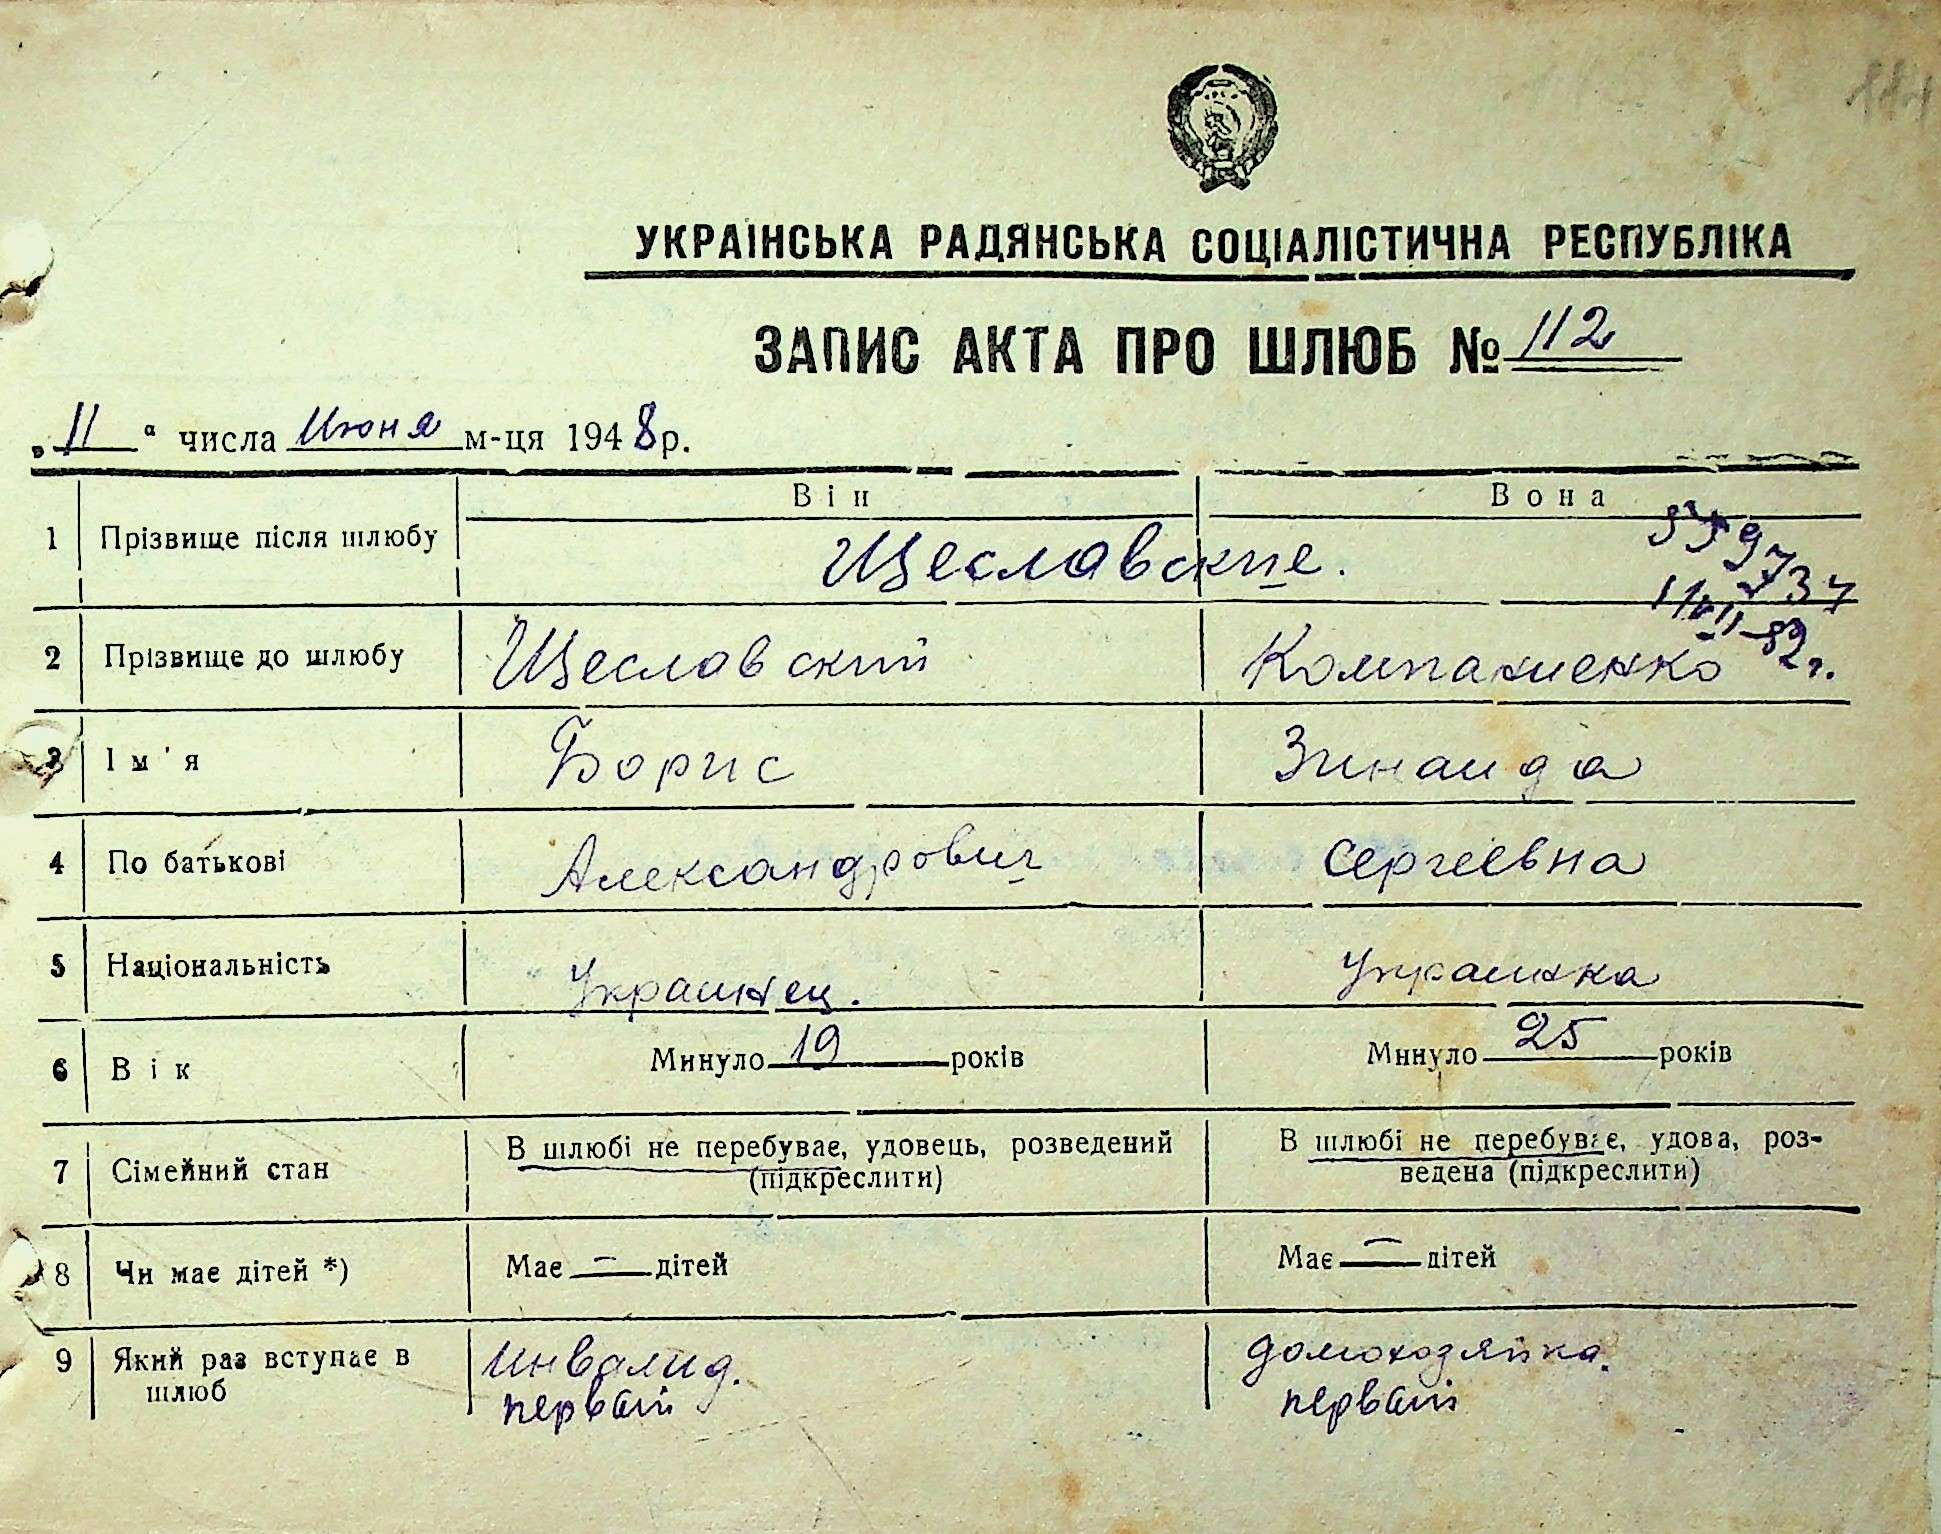 УКРАЇНСЬКА РАДЯНСЬКА СОЦІАЛІСТИЧНА РЕСПУБЛІКА
ЗАПИС АКТА ПРО ШЛЮБ № 112
„11“ числа Июня м-ця 1948 р.
Він Вона
1 Прізвище після шлюбу Щеславские.
559737
11 VII-82 г.
2 Прізвище до шлюбу Щеславский Компаниенко
3 Ім'я Борис Зинаида
4 По батькові Александрович Сергеевна
5 Національність Украинец. Украинка
6 Вік Минуло 19 років Минуло 25 років
7 Сімейний стан В шлюбі не перебуває, удовець, розведений (підкреслити) В шлюбі не перебуває, удова, роз-
ведена (підкреслити)
8 Чи має дітей *) Має — дітей Має — дітей
9 Який раз вступає в шлюб инвалид. домохозяйка.
первый первый